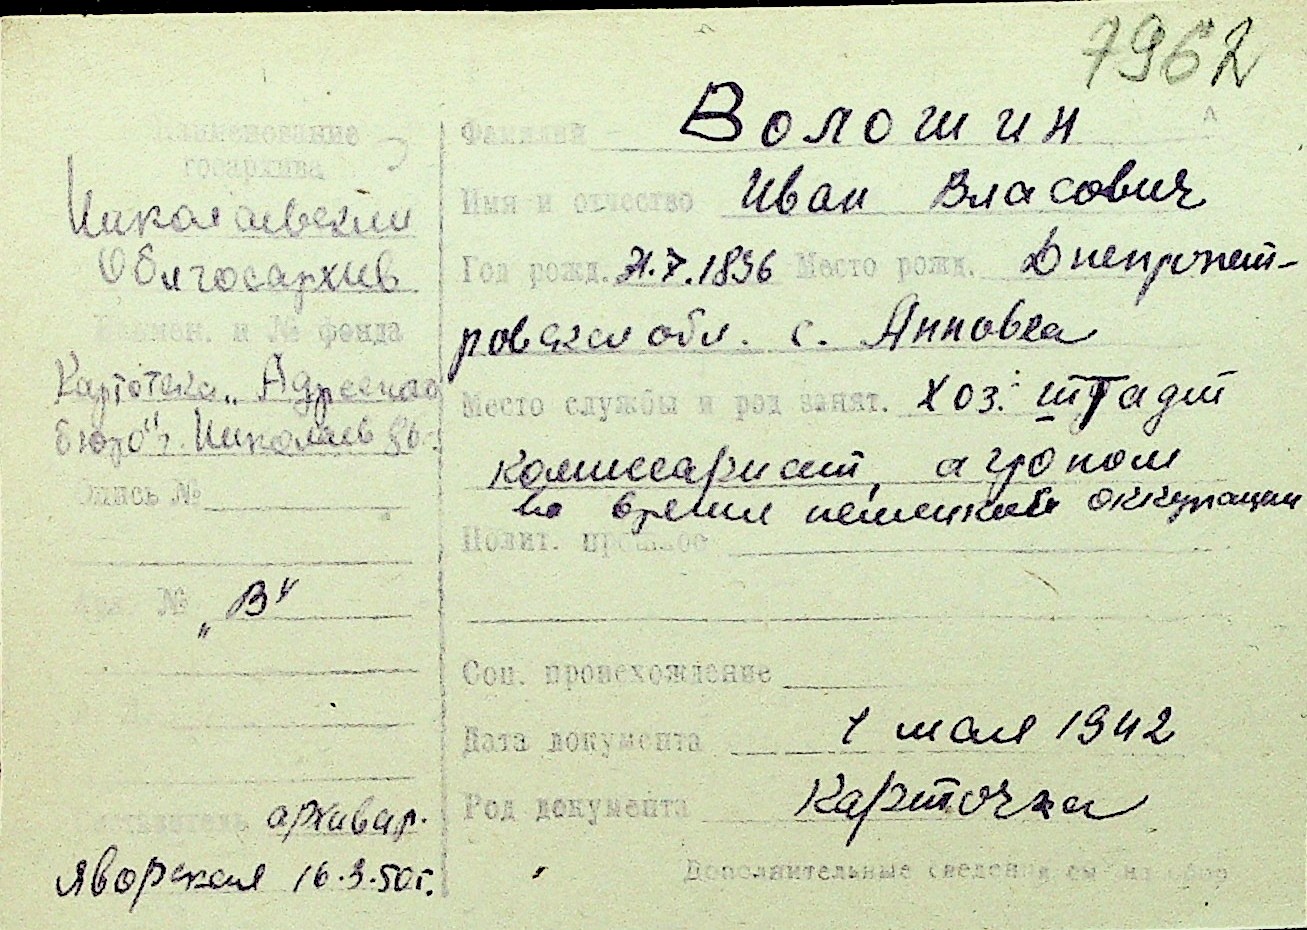 7962
Наименование
госархива
Николаевский
Облгосархив
Наимен. и № фонда
Картотека „Адресного
бюро" г. Николаев
Опись №
Арх. №
„В"
Составитель архивар.
Яворская 16.3.50г.
Фамилия Волошин
Имя и отчество Иван Власович
Год рожд. 1896 Место рожд. Днепропет-
ровская обл. с. Анновка
Место службы и род занят. Хоз. штадт
комиссариат, агроном
во время немецкой оккупации
Полит. прошлое
Соц. происхождение
Дата документа 1 мая 1942
Род документа Карточка
Дополнительные сведения см. на обор